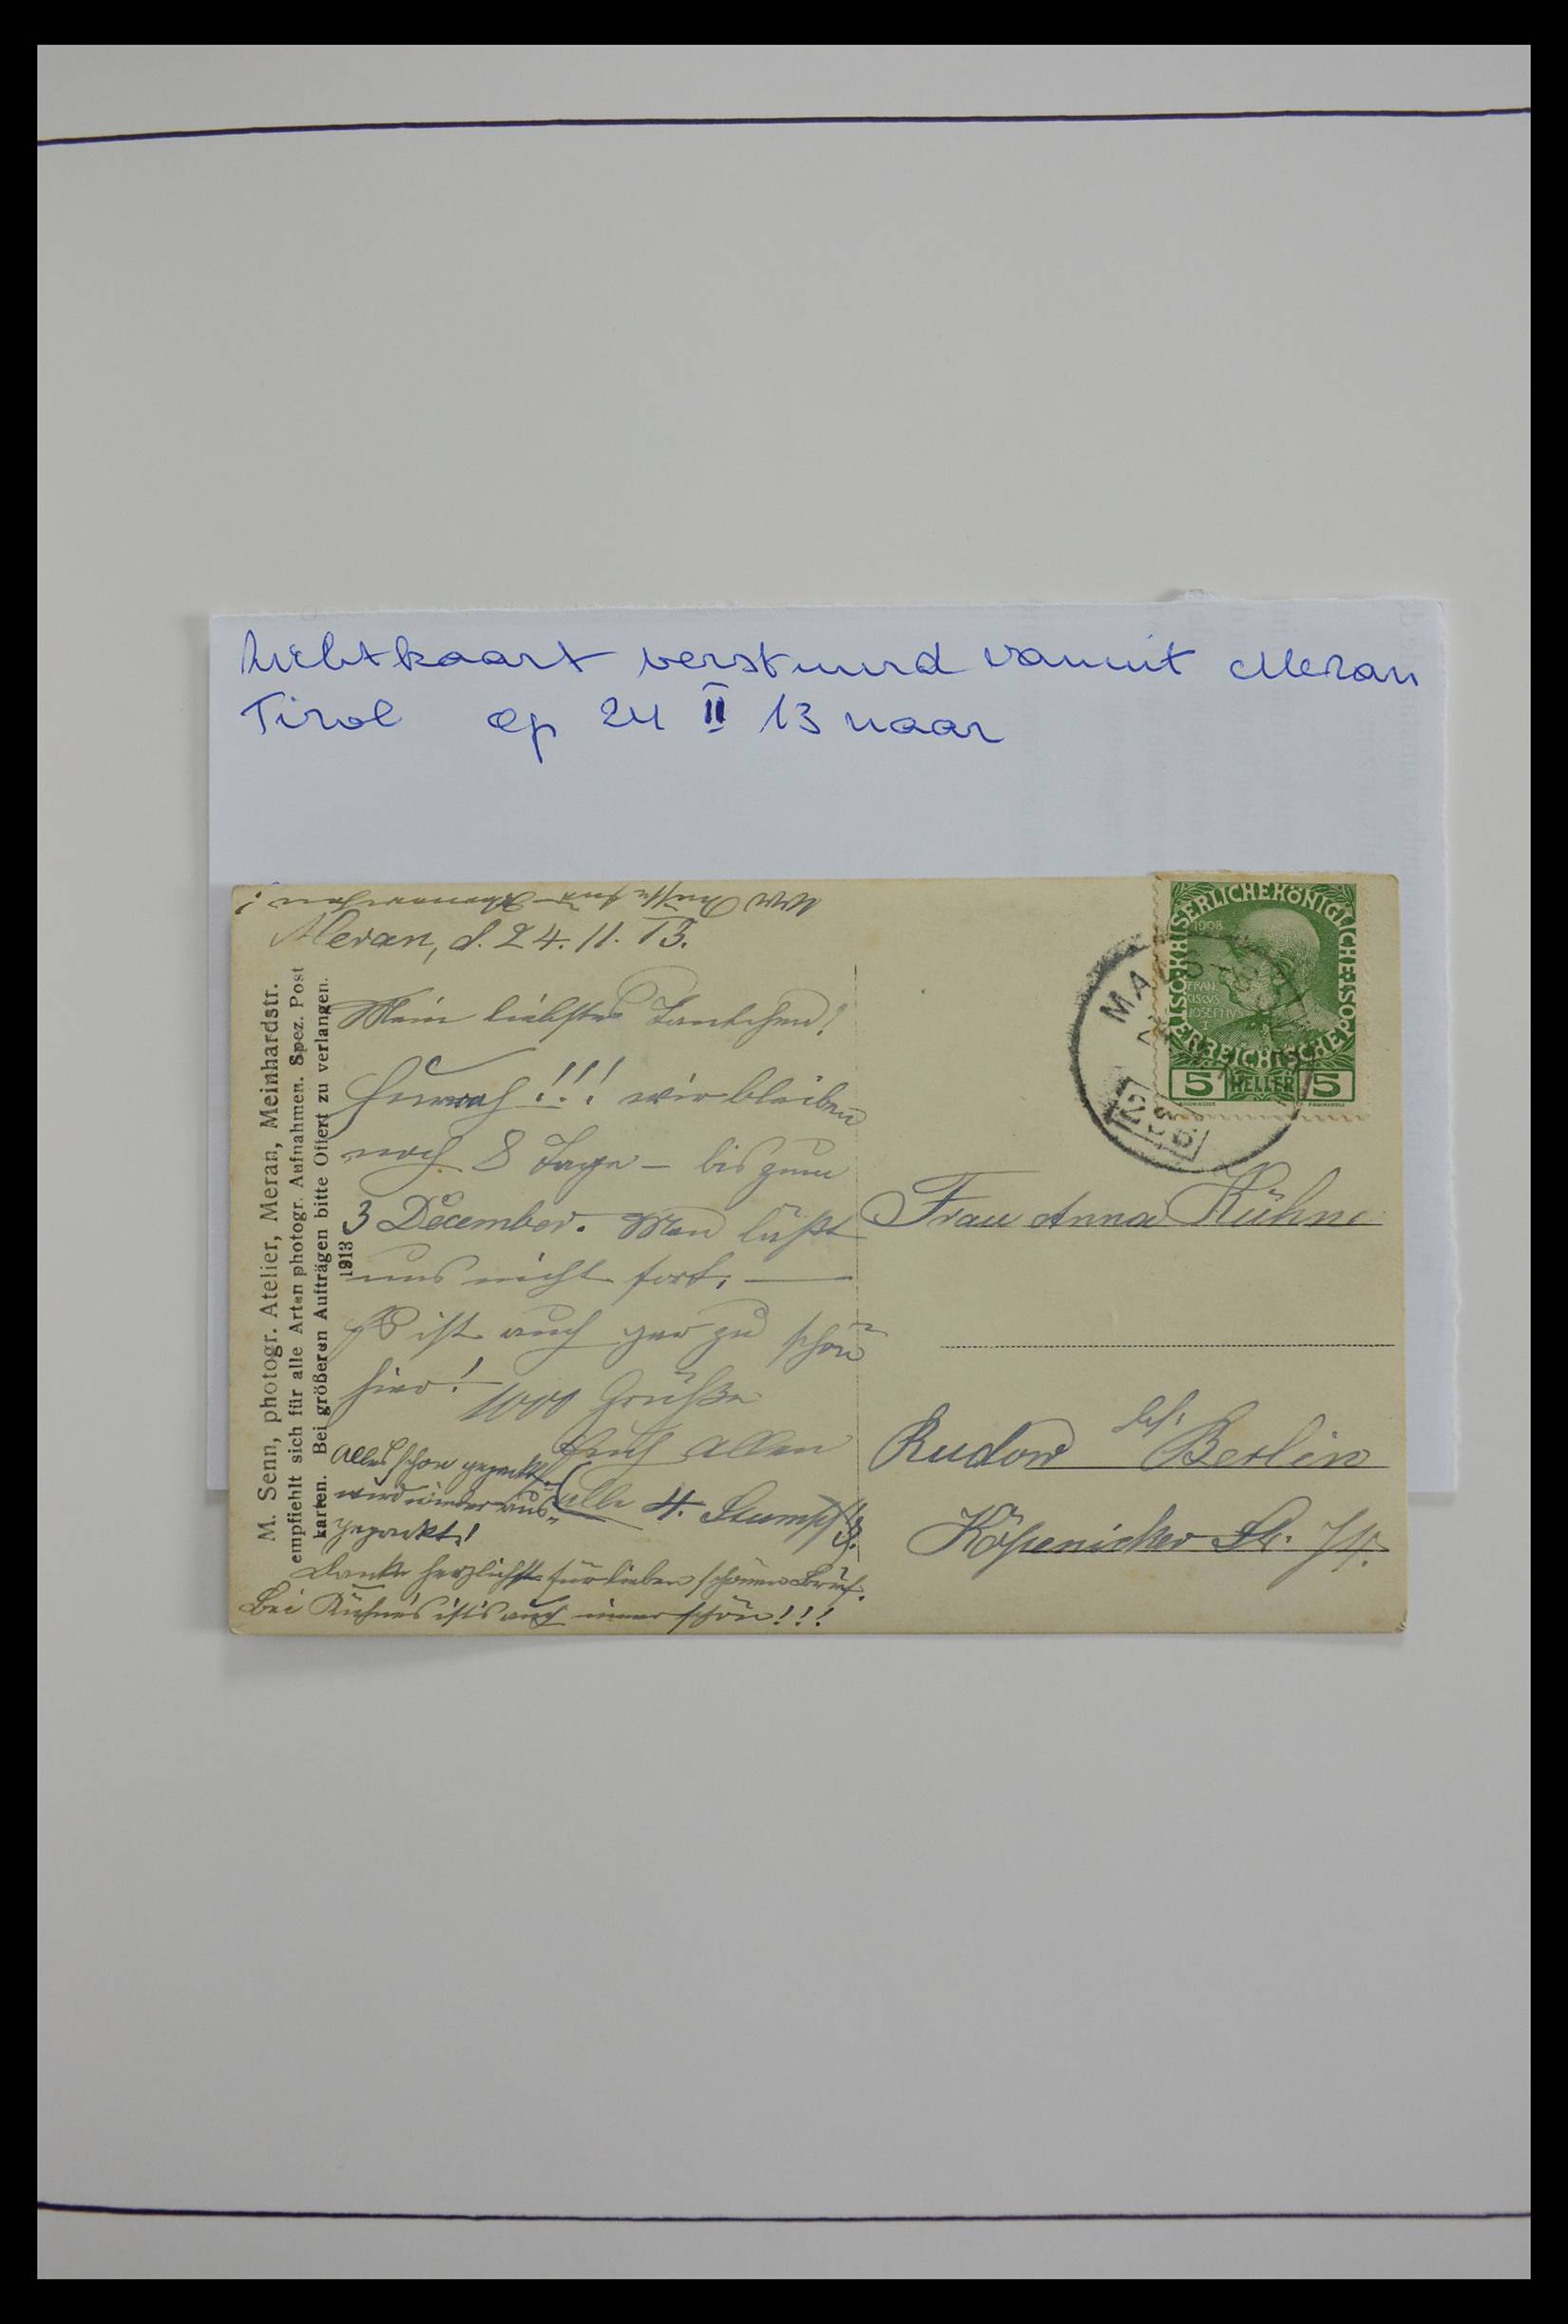 Zichtkaart verstuurd vanuit Meran
Tirol op 24 II 13 naar
Meran, d. 24. 11. 13.
Mein liebstes Tantchen!
Hurrah!!! wir bleiben
noch 8 Tage – bis zum
3 December. Man läßt
uns nicht fort. —
Es ist auch gar zu schön
hier! 1000 Grüße
Euch Allen
Alles schon gepackt
wird wieder aus-
gepackt!
(alle 4. Stumpf's.
Danke herzlichst für lieben schönen Brief.
Bei Kühne's ist's auch immer schön!!!
M. Senn, photogr. Atelier, Meran, Meinhardstr.
empfiehlt sich für alle Arten photogr. Aufnahmen. Spez. Post
karten. Bei größeren Aufträgen bitte Offert zu verlangen.
1913
KAISERLICHEKÖNIGLICHEÖSTERREICHISCHEPOST
1908
FRAN
CISCVS
JOSEPHVS
I
5 HELLER 5
MA
Frau Anna Kühne
Rudow bei Berlin
Köpenicker St.